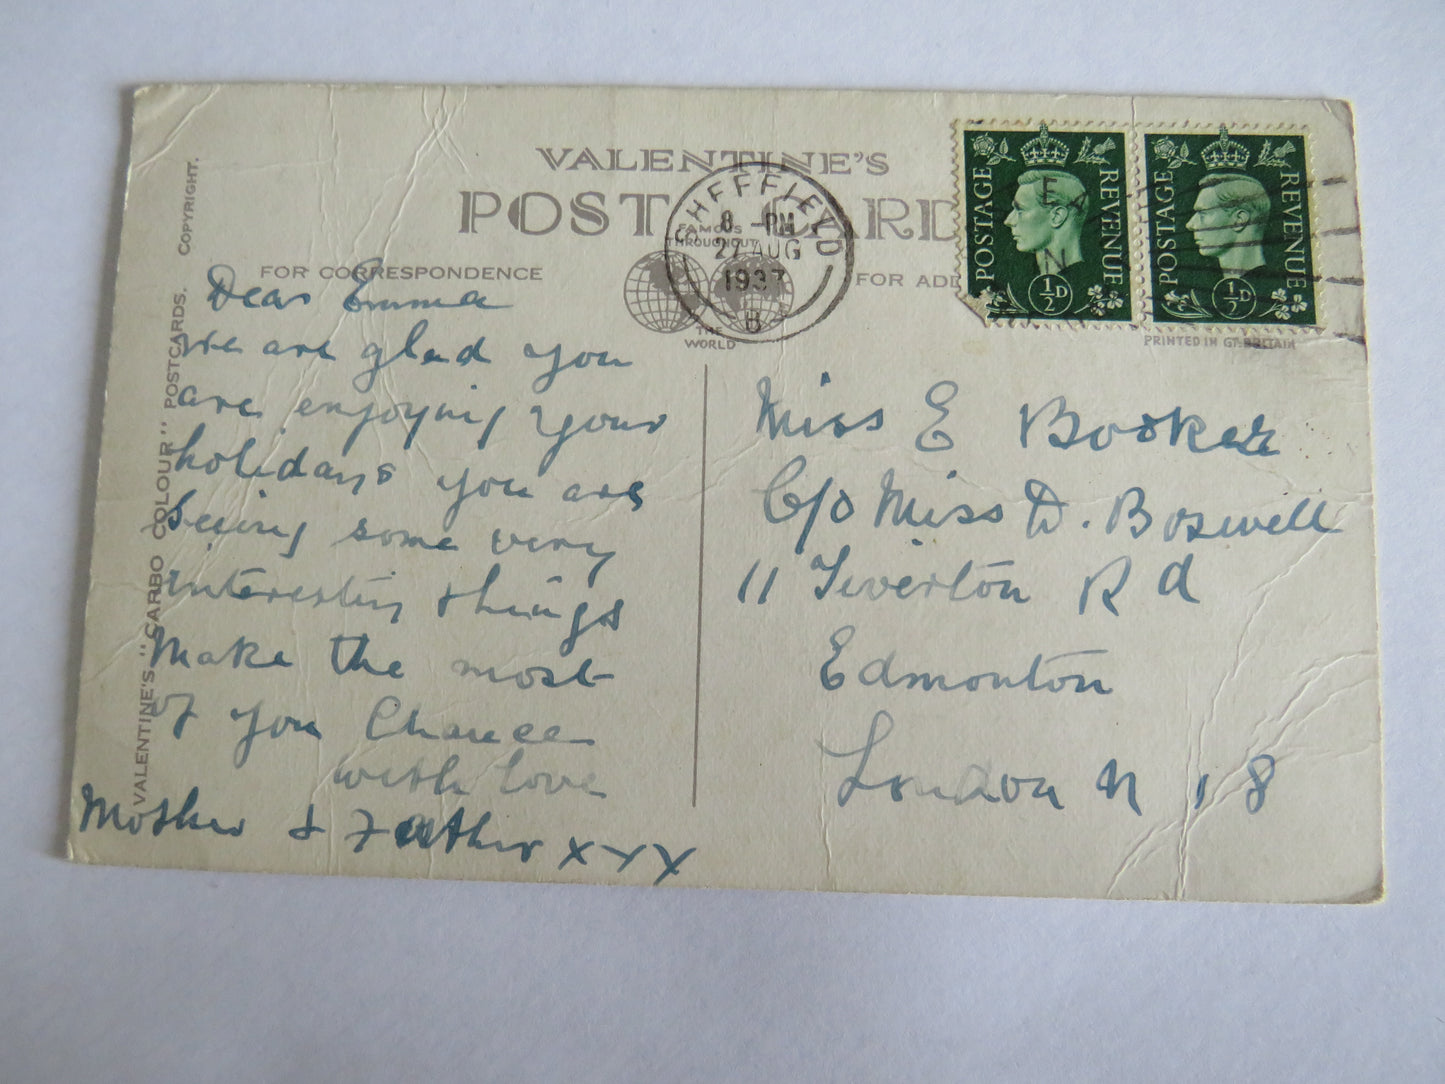 VALENTINE'S
POST CARD
FAMOUS
THROUGHOUT
THE
WORLD
FOR CORRESPONDENCE
FOR ADD
PRINTED IN GT. BRITAIN
VALENTINE'S "CARBO COLOUR" POSTCARDS. COPYRIGHT.
SHEFFIELD
8 - PM
27 AUG
1937
B
POSTAGE REVENUE
½D
POSTAGE REVENUE
½D
Dear Emma
we are glad you
are enjoying your
holidays you are
Seeing some very
interesting things
Make the most
of you Chance
with love
Mother & Father x x x
Miss E Booker
C/o Miss D. Boswell
11 Tiverton Rd
Edmonton
London N 18